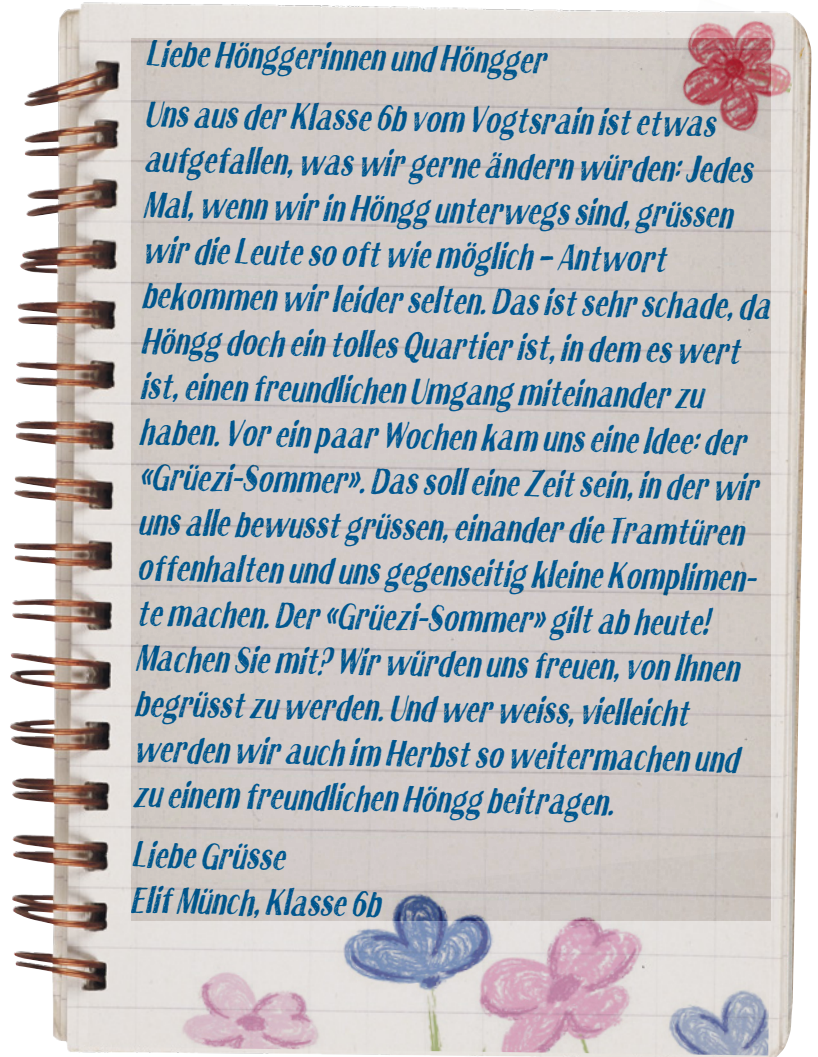 Liebe Hönggerinnen und Höngger
Uns aus der Klasse 6b vom Vogtsrain ist etwas
aufgefallen, was wir gerne ändern würden: Jedes
Mal, wenn wir in Höngg unterwegs sind, grüssen
wir die Leute so oft wie möglich – Antwort
bekommen wir leider selten. Das ist sehr schade, da
Höngg doch ein tolles Quartier ist, in dem es wert
ist, einen freundlichen Umgang miteinander zu
haben. Vor ein paar Wochen kam uns eine Idee: der
«Grüezi-Sommer». Das soll eine Zeit sein, in der wir
uns alle bewusst grüssen, einander die Tramtüren
offenhalten und uns gegenseitig kleine Komplimen-
te machen. Der «Grüezi-Sommer» gilt ab heute!
Machen Sie mit? Wir würden uns freuen, von Ihnen
begrüsst zu werden. Und wer weiss, vielleicht
werden wir auch im Herbst so weitermachen und
zu einem freundlichen Höngg beitragen.
Liebe Grüsse
Elif Münch, Klasse 6b